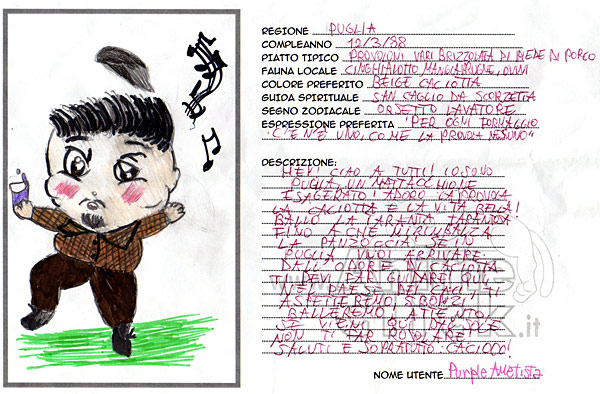 REGIONE PUGLIA
COMPLEANNO 12/3/88
PIATTO TIPICO PROVOLONI VARI BRIZZOLATA DI PIEDE DI PORCO
FAUNA LOCALE CINGHIALOTTO MANGIAPRUGNE, OVINI
COLORE PREFERITO BEIGE CACIOTTA
GUIDA SPIRITUALE SAN CAGLIO DA SCORZETTA
SEGNO ZODIACALE ORSETTO LAVATORE
ESPRESSIONE PREFERITA "PER OGNI FORMAGGIO
C'E N'È UNO, COME LA PROVOLA NESSUNO"
DESCRIZIONE:
HEY! CIAO A TUTTI! IO SONO
PUGLIA, UN MATTACCHIONE
ESAGERATO! ADORO LA PROVOLA
LA CACIOTTA E LA VITA BELLA!
BALLO LA TARANTA TARANTOLA
FINO A CHE MI RIMBALZA
LA PANZOCCIA! SE IN
PUGLIA VUOI ARRIVARE
DALL'ODORE DI CACIOTTA
TI DEVI FAR GUIDARE! QUI
NEL PAESE DEI CACI, TI
ASPETTEREMO! SBRONZI,
BALLEREMO! ATTENTO,
SE VIENI QUI DAL SOLE
NON TI FAR ROSOLARE
SALUTI E SOPRATTUTTO: CACIODO!
NOME UTENTE Purple Ametista